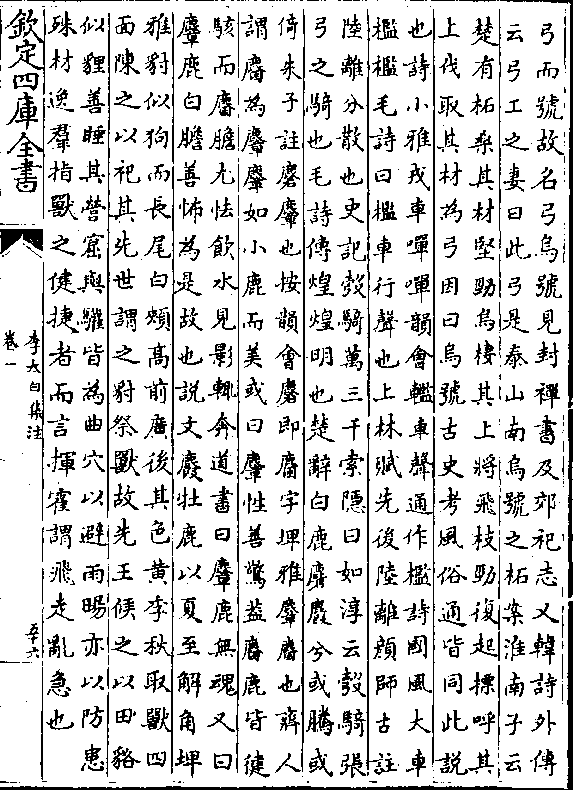 弓而號故名弓烏號見封禪書及郊祀志又韓詩外傳
云弓工之妻曰此弓是泰山南烏號之柘案淮南子云
楚有柘桑其材堅勁烏棲其上將飛枝勁復起摽呼其
上伐取其材為弓因曰烏號古史考風俗通皆同此説
也詩小雅戎車嘽嘽韻會轞車聲通作檻詩國風大車
檻檻毛詩曰檻車行聲也上林賦先後陸離顔師古註
陸離分散也史記彀騎萬三千索隱曰如淳云彀騎張
弓之騎也毛詩傳煌煌明也楚辭白鹿麏麚兮或騰或
倚朱子註麏麞也按韻會麏即麕字埤雅麞麕也齊人
謂麕為麞麞如小鹿而美或曰麞性善驚葢麕鹿皆健
駭而麕膽尤怯飲水見影輒奔道書曰麞鹿無魂又曰
麞鹿白膽善怖為是故也説文麚牡鹿以夏至解角埤
雅豺似狗而長尾白頰髙前廣後其色黃季秋取獸四
面陳之以祀其先世謂之豺祭獸故先王候之以田貉
似貍善睡其營窟與貛皆為曲穴以避雨暘亦以防患
殊材逸羣指獸之健捷者而言揮霍謂飛走亂急也
欽定四庫全書
李太白集注
卷一
五十六